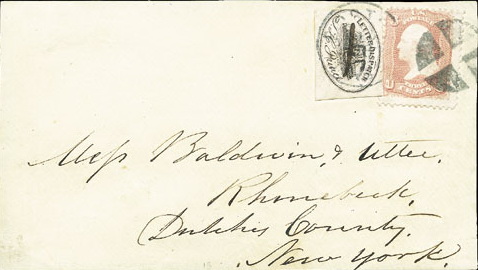 LETTER DISPATCH
CENTS
Mess Baldwin, & Uttee.
Rhinebeck,
Dutchis County,
New York.